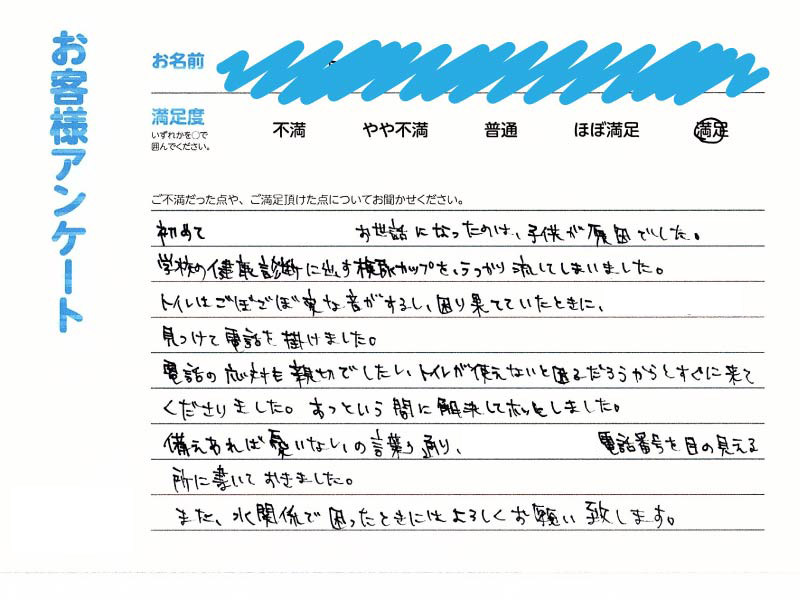 お客様アンケート
お名前
満足度
いずれかを○で
囲んでください。
不満 やや不満 普通 ほぼ満足 満足
ご不満だった点や、ご満足頂けた点についてお聞かせください。
初めて お世話になったのは、子供が原因でした。
学校の健康診断に出す検尿カップを、うっかり流してしまいました。
トイレはごぼごぼ変な音がするし、困り果てていたときに、
見つけて電話を掛けました。
電話の応対も親切でしたし、トイレが使えないと困るだろうからとすぐに来て
くださりました。あっという間に解決してホッとしました。
備えあれば憂いなしの言葉通り、 電話番号を目の見える
所に書いておきました。
また、水関係で困ったときにはよろしくお願い致します。